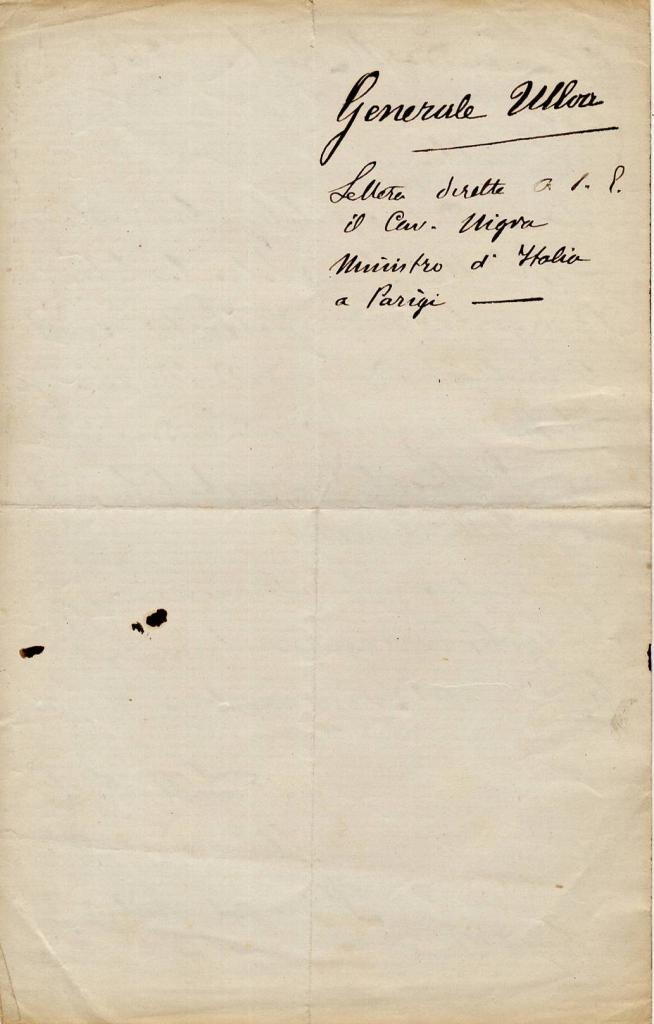 Generale Ulloa
Lettera diretta a S. E.
il Cav. Nigra
Ministro d'Italia
a Parigi —